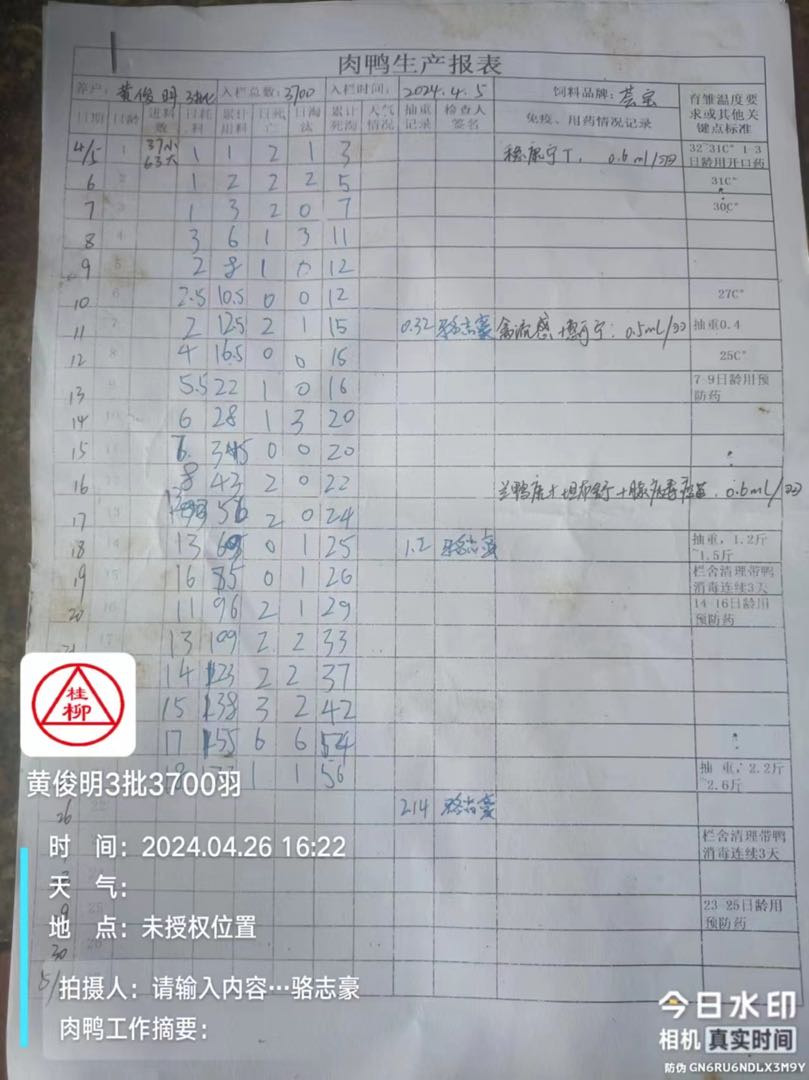 肉鸭生产报表
养户: 黄俊明 3批 入栏总数: 3700 入栏时间: 2024.4.5 饲料品牌: 育雏温度要求或其他关键点标准
日期 日龄 进料数 日耗料 累计用料 日死亡 日淘汰 累计死淘 天气情况 抽重记录 检查人签名 免疫、用药情况记录
4/5 1 37小 63大 1 1 2 1 3 0.6ml/羽 32~31C° 1-3日龄用开口药
6 2 1 2 2 2 5 31C°
7 3 1 3 2 0 7 30C°
8 4 3 6 1 3 11
9 5 2 8 1 0 12
10 6 2.5 10.5 0 0 12 27C°
11 7 2 12.5 2 1 15 0.32 骆志豪 禽流感 0.5ml/羽 抽重0.4
12 8 4 16.5 0 0 15 25C°
13 9 5.5 22 1 0 16 7-9日龄用预防药
14 10 6 28 1 3 20
15 0 0 20
16 8 43 2 0 22 0.6ml/羽
17 13 56 2 0 24
18 14 13 69 0 1 25 1.2 骆志豪 抽重,1.2斤~1.5斤
19 15 16 85 0 1 26 栏舍清理带鸭消毒连续3天
20 16 11 96 2 1 29 14-16日龄用预防药
21 17 13 109 2 2 33
14 123 2 2 37
15 138 3 2 42
17 155 6 6 54
18 1 1 56 抽重,2.2斤~2.6斤
26 22 214 骆志豪
栏舍清理带鸭消毒连续3天
9 25 23-25日龄用预防药
30 26
5/
桂柳
黄俊明3批3700羽
时 间: 2024.04.26 16:22
天 气:
地 点: 未授权位置
拍摄人: 请输入内容…骆志豪
肉鸭工作摘要:
今日水印
相机 真实时间
防伪 GN6RU6NDLX3M9Y